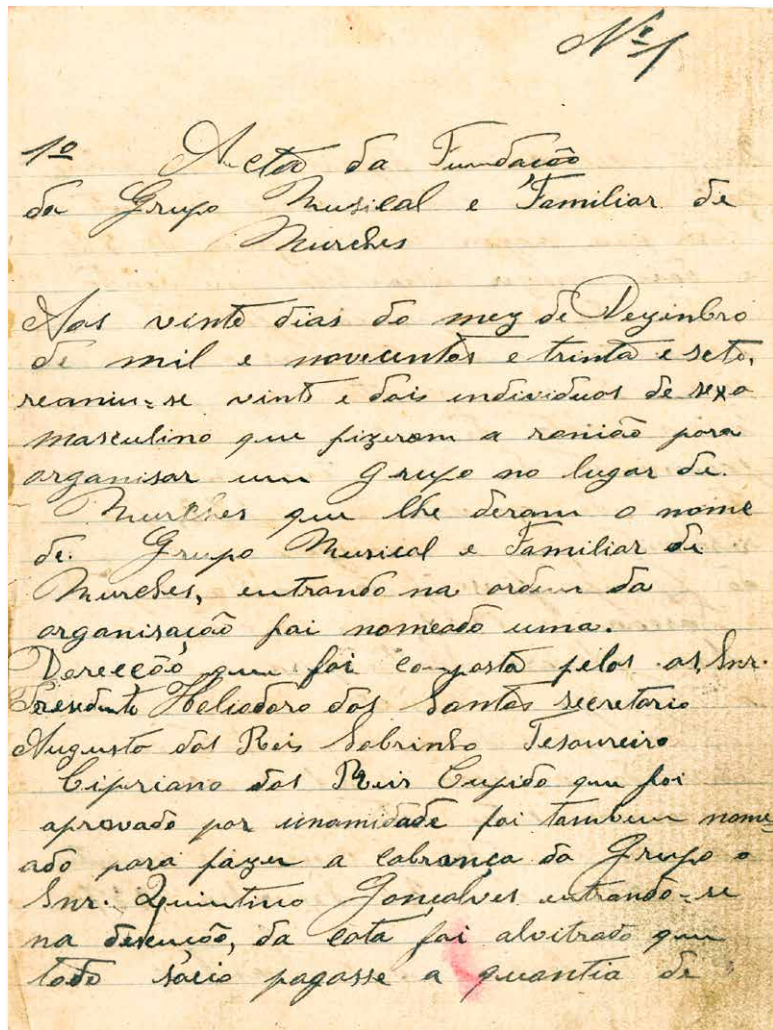 Nº 1
1º Acta da Fundação
da Grupo Musical e Familiar de
Murches
Aos vinte dias do mez de Dezinbro
de mil e novecentos e trinta e sete,
reaniu=se vinte e dois individuos de sexo
masculino que fizeram a renião para
organisar um Grupo no lugar de.
Murches que lhe deram o nome
de. Grupo Musical e Familiar de
Murches, entrando na ordem da
organisação foi nomeado uma.
Derecção que foi composta pelos os, Snr.
Presidente Heliodoro dos Santos secretario
Augusto dos Reis Sobrinho Tesoureiro
Cipriano dos Reis Cupido que foi
aprovado por unamidade foi tambem nome=
ado para fazer a cobrança do Grupo o
Snr. Quintino Gonçalves entrando=se
na descução, da cota foi alvitrado que
todo sócio pagasse a quantia de